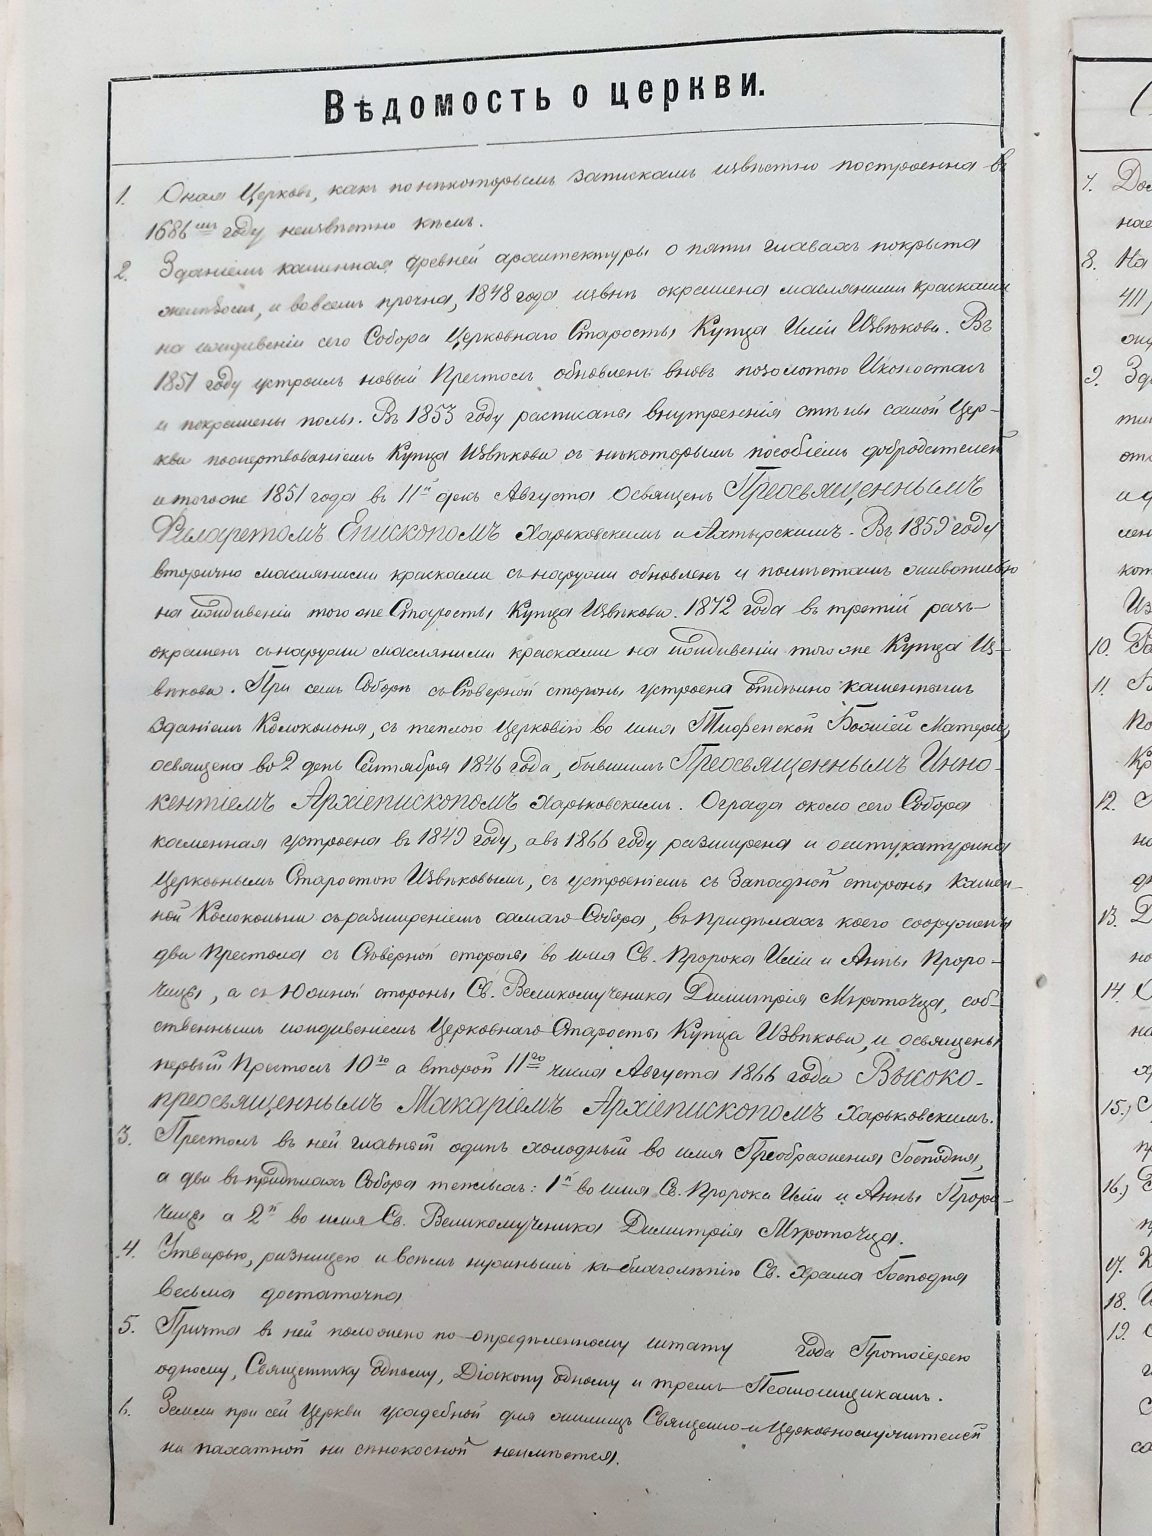 Вѣдомость о церкви.
1. Оная Церковь, какъ по нѣкоторымъ запискамъ извѣстно построенна въ
1686мъ году неизвѣстно кѣмъ.
2. Зданіемъ каменная древней архитектуры о пяти главахъ покрыта
желѣзомъ, и вовсемъ прочна, 1848 года извнѣ окрашена масляними красками
на иждивеніи сего Собора Церковнаго Старосты Купца Иліи Извѣкова. Въ
1851 году устроенъ новый Престолъ обновленъ вновь позолотою Иконостасъ
и покрашены полы. Въ 1853 году расписаны внутреннія стѣны самой Цер-
кви пожертвованіемъ Купца Извѣкова съ нѣкоторымъ пособіемъ добродѣтелей
и тогоже 1851 года въ 11й день Августа освященъ Преосвященнымъ
Филаретомъ Епископомъ Харьковскимъ и Ахтырскимъ. Въ 1859 году
вторично масляними красками снаружи обновленъ и
на иждивеніи того же Старосты Купца Извѣкова. 1872 года въ третій разъ
окрашенъ снаружи масляними красками на иждивеніи того же Купца Из-
вѣкова. При семъ Соборѣ съ Сѣверной стороны устроена отдѣльно каменнымъ
зданіемъ Колокольня, съ теплою Церковію во имя Божіей Матери,
освящена во 2 день Сентября 1846 года, бывшимъ Преосвященнымъ Инно-
кентіемъ Архіепископомъ Харьковскимъ. Ограда около сего Собора
каменная устроена въ 1849 году, а въ 1866 году разширена и оштукатурина
Церковнымъ Старостою Извѣковымъ, съ устроеніемъ съ Западной стороны Камен-
ной Колокольни съ разширеніемъ самаго Собора, въ придѣлахъ коего сооружены
два Престола съ Сѣверной стороны во имя Св. Пророка Иліи и Анны Проро-
чицы, а съ Южной стороны Св. Великомученика Димитрія Мѵроточца, соб-
ственнымъ иждивеніемъ Церковнаго Старосты Купца Извѣкова, и освящены
первый Престолъ 10го а второй 11го числа Августа 1866 года Высоко-
преосвященнымъ Макаріемъ Архіепископомъ Харьковскимъ.
3. Престолъ въ ней главный одинъ холодный во имя Преображенія Господня,
а два въ придѣлахъ Собора теплыхъ: 1й во имя Св. Пророка Иліи и Анны Проро-
чицы а 2й во имя Св. Великомученика Димитрія Мѵроточца.
4. Утварью, ризницею и всѣмъ нужнымъ къ благолѣпію Св. Храма Господня
весьма достаточна
5. Причта въ ней положено по опредѣленному штату года Протоіерею
одному, Священнику одному, Діакону одному и тремъ Псаломщикамъ.
6. Земли при сей Церкви усадебной для жилищъ Священно-и-Церковнослужителей
ни пахатной ни сѣнокосной неимѣется.
7.
8. На
9.
10.
11.
12.
13.
14.
15.,
16.,
17.
18.
19.